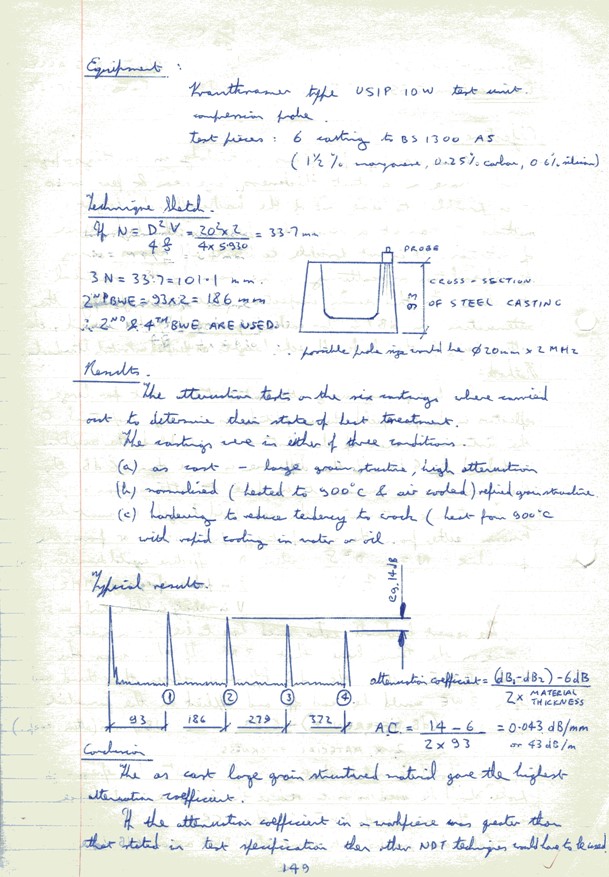 Equipment :
Krautkramer type USIP 10W test unit.
compression probe.
test pieces : 6 casting to BS 1300 A5
( 1½ % manganese, 0.25% carbon, 0.6% silicon)
Technique Sketch.
If N = D²V / 4f = 20² x 2 / 4 x 5.930 = 33.7 mm
PROBE
3 N = 33.7 = 101.1 mm.
CROSS - SECTION
2ND BWE = 93 x 2 = 186 mm
93
OF STEEL CASTING
∴ 2ND & 4TH BWE ARE USED.
∴ possible probe size could be Ø 20mm x 2 MHz
Results.
The attenuation tests on the six castings where carried
out to determine their state of heat treatment.
The castings were in either of three conditions.
(a) as cast - large grain structure, high attenuation
(b) normalised ( heated to 900°C & air cooled) refined grain structure
(c) hardening to reduce tendency to crack ( heat from 900°C
with rapid cooling in water or oil.
Typical result.
eg. 14dB
attenuation coefficient = (dB1 - dB2) - 6dB / 2 x MATERIAL THICKNESS
1 2 3 4
93 186 279 372
A.C. = 14 - 6 / 2 x 93 = 0.043 dB/mm
or 43 dB/m
Conclusion
The as cast large grain structured material gave the highest
attenuation coefficient.
If the attenuation coefficient in a workpiece was greater than
that stated in test specification then other NDT techniques could have to be used
149